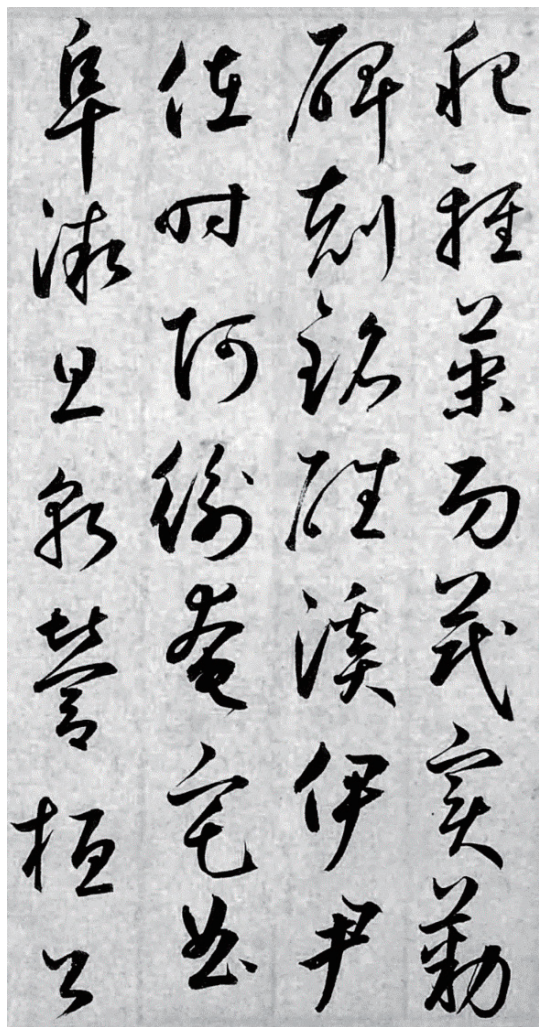 肥轻策功茂实勒
碑刻铭磻溪伊尹
佐时阿衡奄宅曲
阜微旦孰营桓公